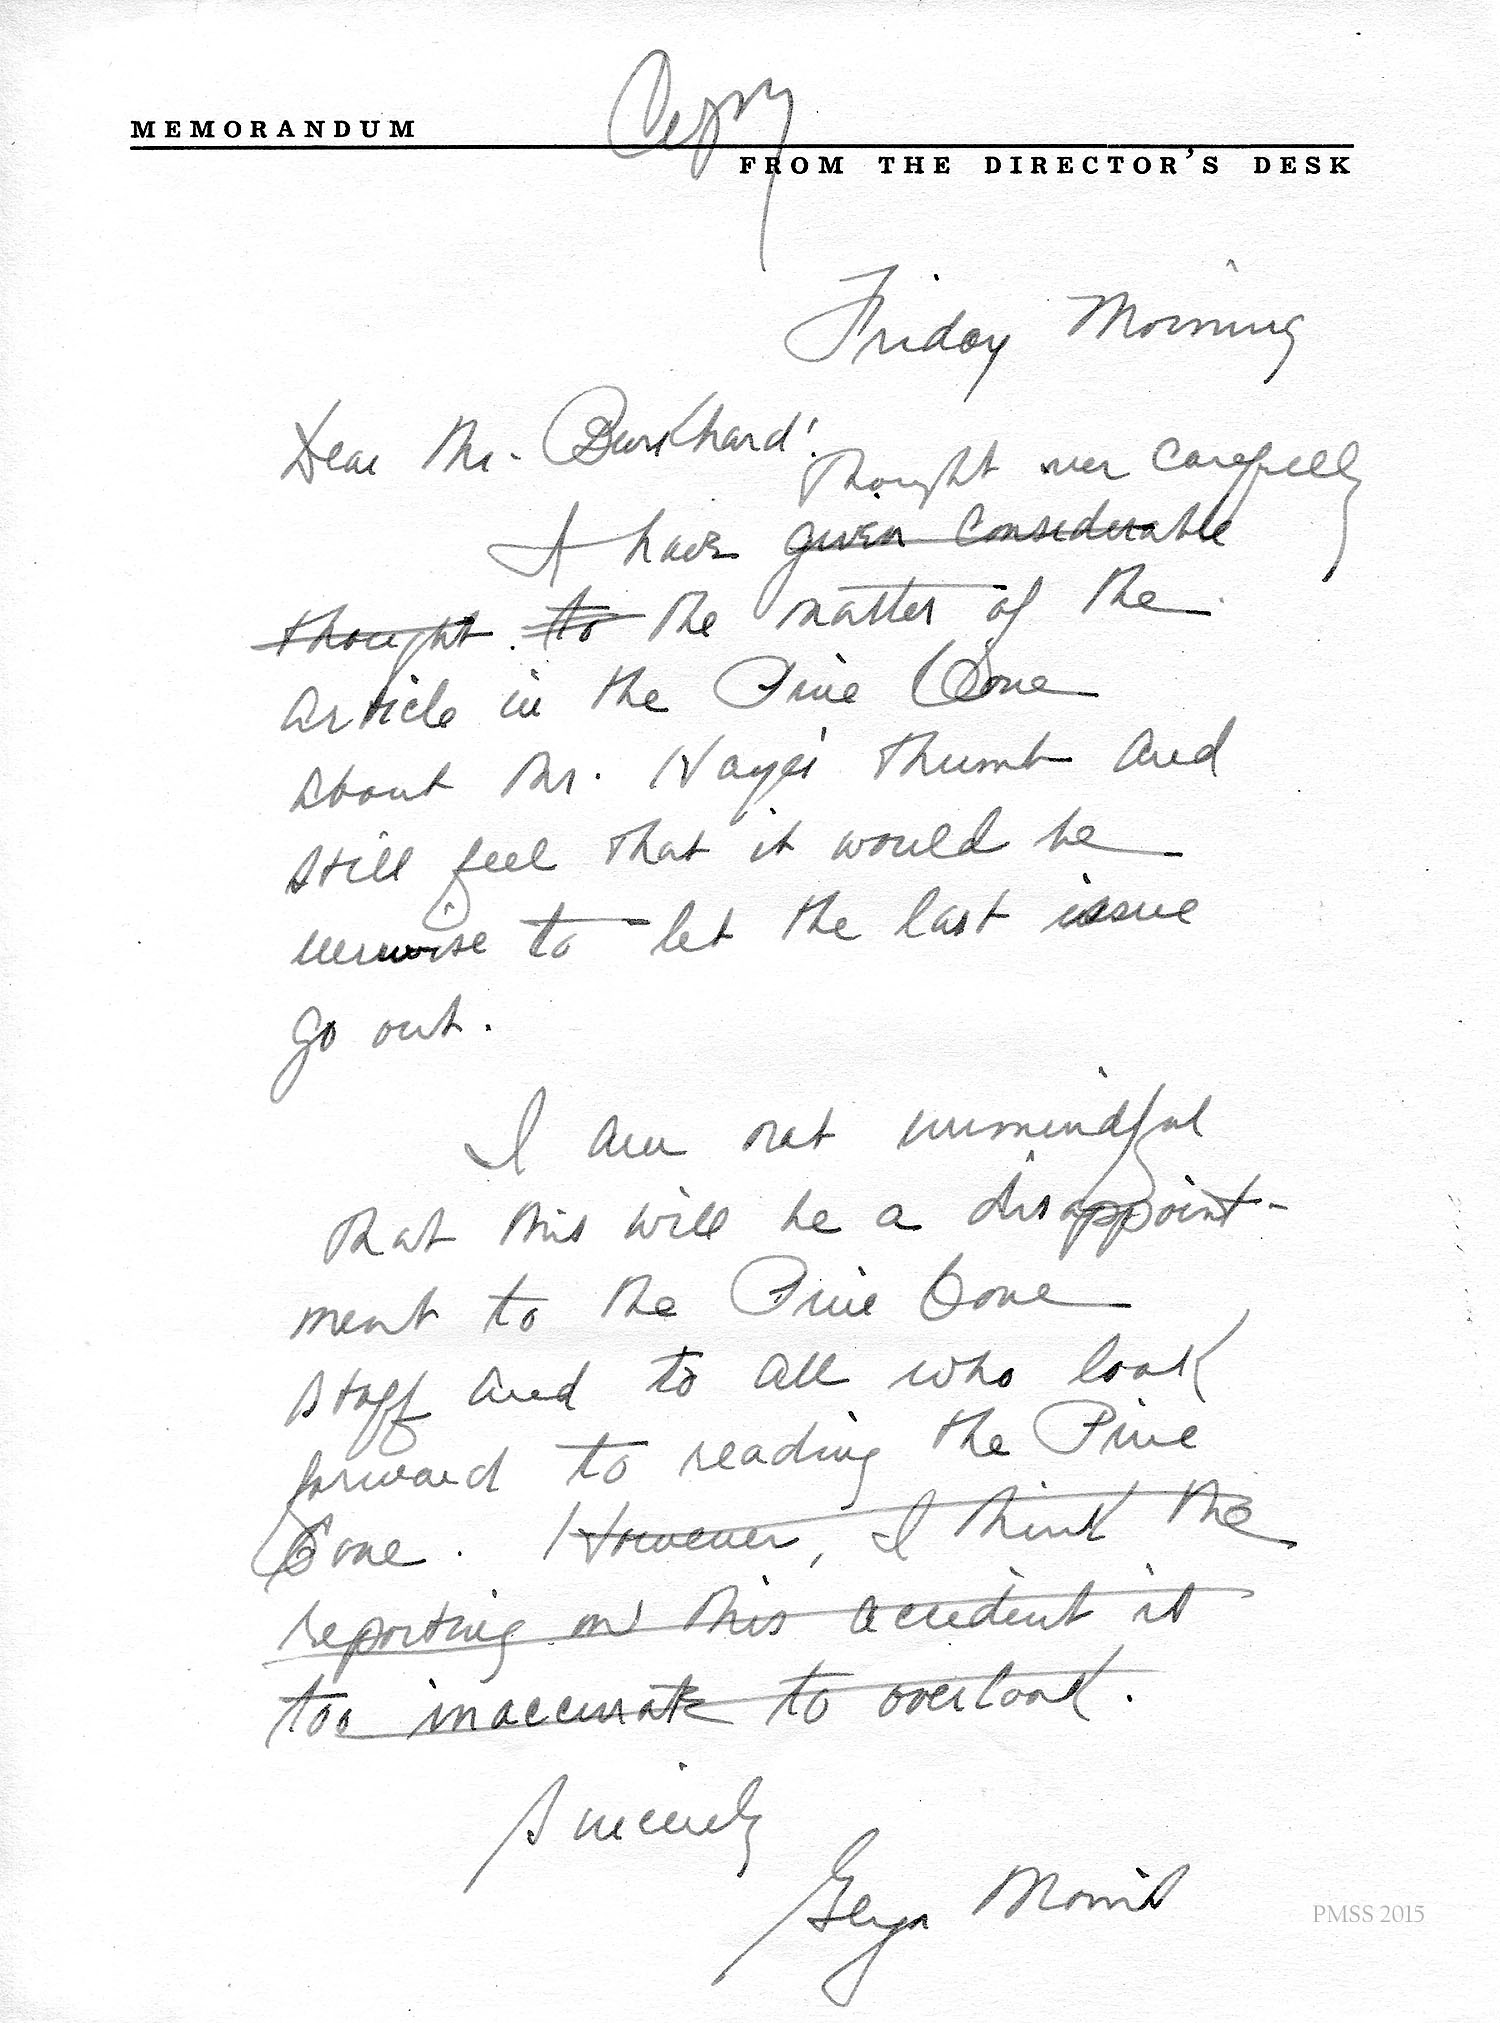 Copy
MEMORANDUM
FROM THE DIRECTOR'S DESK
Friday Morning
Dear Mr. Burkhard:
thought over carefully
I have given considerable
thought to the matter of the
article in the Pine Cone
about Mr. Hayes' thumb and
still feel that it would be
unwise to let the last issue
go out.
I am not unmindful
that this will be a disappoint-
ment to the Pine Cone
staff and to all who look
forward to reading the Pine
Cone. However, I think the
reporting on this accident is
too inaccurate to overlook.
Sincerely
Glyn Morris
PMSS 2015